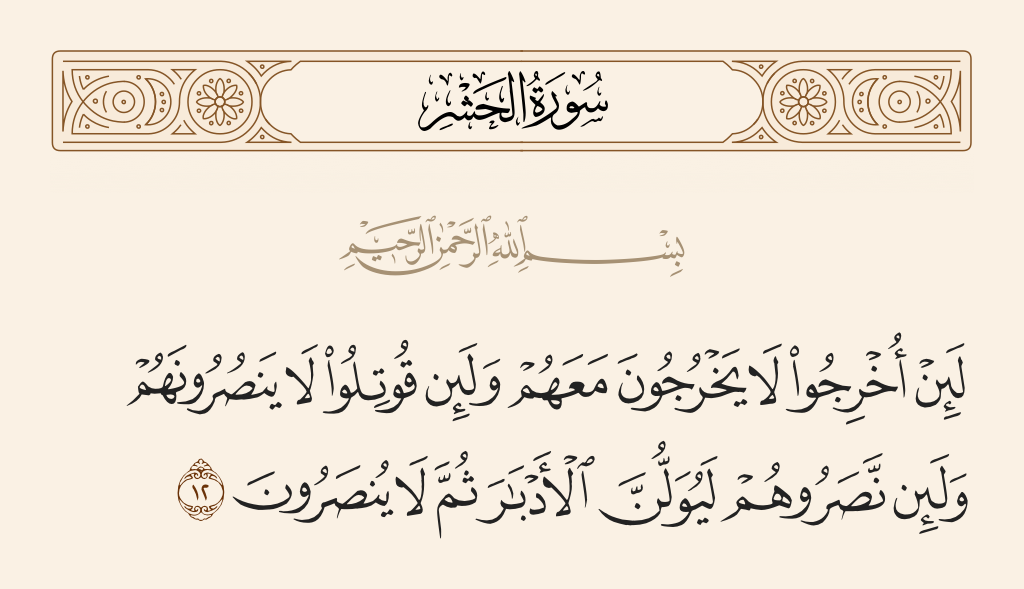 سُورَةُ الحَشْرِ
بِسْمِ ٱللَّهِ ٱلرَّحْمَٰنِ ٱلرَّحِيمِ
لَئِنْ أُخْرِجُوا۟ لَا يَخْرُجُونَ مَعَهُمْ وَلَئِن قُوتِلُوا۟ لَا يَنصُرُونَهُمْ
وَلَئِن نَّصَرُوهُمْ لَيُوَلُّنَّ ٱلْأَدْبَٰرَ ثُمَّ لَا يُنصَرُونَ ١٢